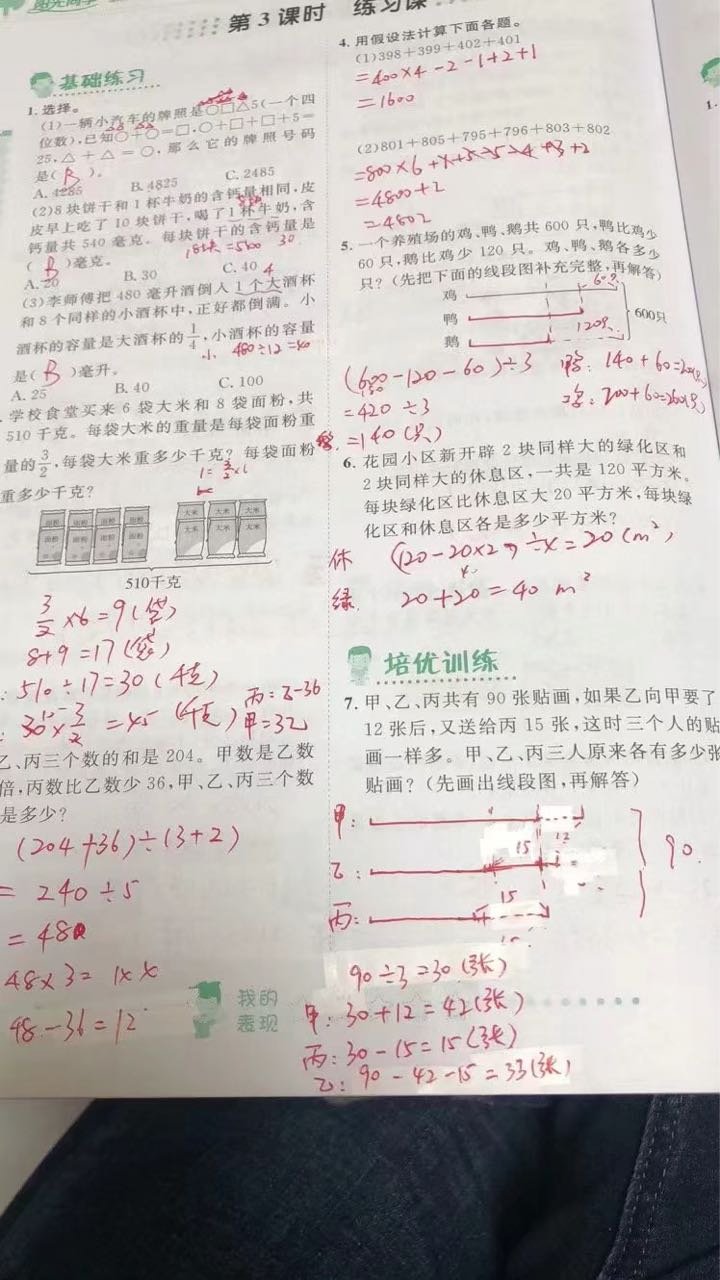 第3课时 练习课
基础练习
1.选择。
(1)一辆小汽车的牌照是○□△5(一个四
位数),已知○+○=□,○+□+□+5=
25,△+△=○,那么它的牌照号码
是( B )。
A. 4285 B. 4825 C. 2485
(2)8块饼干和1杯牛奶的含钙量相同,皮
皮早上吃了10块饼干,喝了1杯牛奶,含
钙量共540毫克。每块饼干的含钙量是
18块=540 30
( B )毫克。
A. 20 B. 30 C. 40
(3)李师傅把480毫升酒倒入1个大酒杯
和8个同样的小酒杯中,正好都倒满。小
酒杯的容量是大酒杯的1/4,小酒杯的容量
小 480÷12=40
是( B )毫升。
A. 25 B. 40 C. 100
学校食堂买来6袋大米和8袋面粉,共
510千克。每袋大米的重量是每袋面粉重
量的3/2,每袋大米重多少千克?每袋面粉
重多少千克?
面粉 面粉 面粉 面粉 大米 大米 大米
面粉 面粉 面粉 面粉 大米 大米 大米
510千克
3/2×6=9(袋)
8+9=17(袋)
510÷17=30(千克)
30×3/2=45(千克)
丙=乙-36
甲=3乙
乙、丙三个数的和是204。甲数是乙数
倍,丙数比乙数少36,甲、乙、丙三个数
是多少?
(204+36)÷(3+2)
=240÷5
=48
48×3=
48-36=12
我的
表现
4.用假设法计算下面各题。
(1)398+399+402+401
=400×4-2-1+2+1
=1600
(2)801+805+795+796+803+802
=800×6+1+5-5-4+3+2
=4800+2
=4802
5.一个养殖场的鸡、鸭、鹅共600只,鸭比鸡少
60只,鹅比鸡少120只。鸡、鸭、鹅各多少
只?(先把下面的线段图补充完整,再解答)
鸡 60只
鸭 600只
鹅 120只
(600-120-60)÷3 鸭:140+60=200(只)
=420÷3 鸡:200+60=260(只)
鹅=140(只)
6.花园小区新开辟2块同样大的绿化区和
2块同样大的休息区,一共是120平方米。
每块绿化区比休息区大20平方米,每块绿
化区和休息区各是多少平方米?
休 (120-20×2)÷4=20(m²)
绿 20+20=40 m²
培优训练
7.甲、乙、丙共有90张贴画,如果乙向甲要了
12张后,又送给丙15张,这时三个人的贴
画一样多。甲、乙、丙三人原来各有多少张
贴画?(先画出线段图,再解答)
甲: 12
乙: 15 90
丙: 15
90÷3=30(张)
甲:30+12=42(张)
丙:30-15=15(张)
乙:90-42-15=33(张)